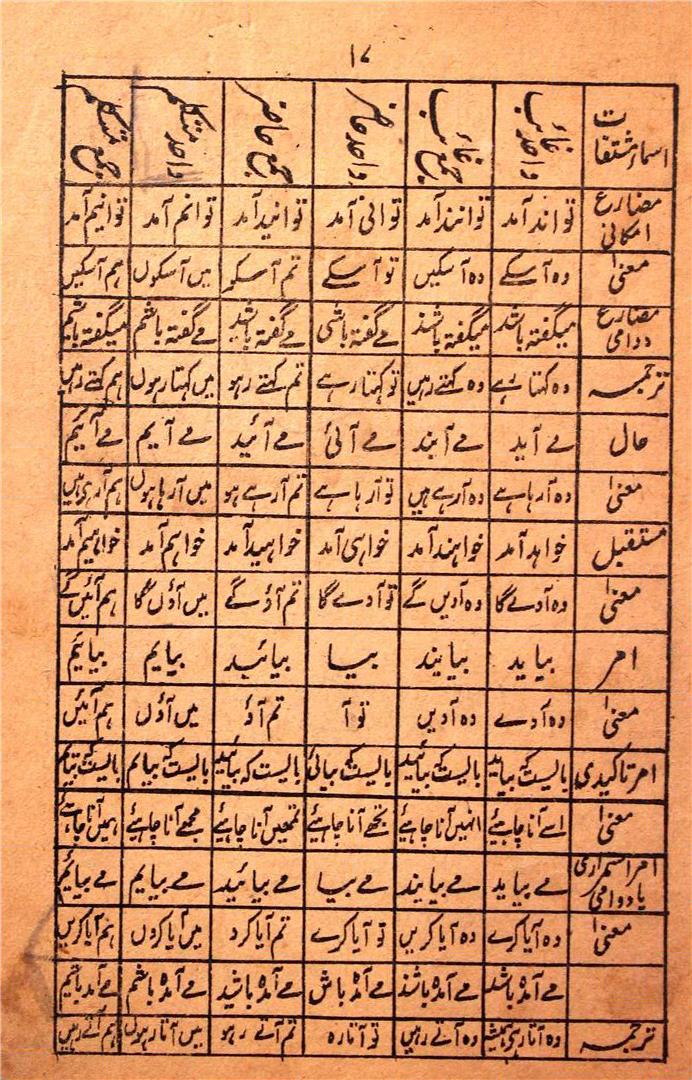 ۱۷
اسماء مشتقات واحد غائب جمع غائب واحد حاضر جمع حاضر واحد متکلم جمع متکلم
مضارع امکانی تواند آمد توانند آمد توانی آمد توانید آمد توانم آمد توانیم آمد
معنیٰ وہ آسکے وہ آسکیں تو آسکے تم آسکو میں آسکوں ہم آسکیں
مضارع دوامی میگفتہ باشد میگفتہ باشند مے گفتہ باشی مے گفتہ باشید مے گفتہ باشم میگفتہ باشیم
ترجمہ وہ کہتا رہے وہ کہتے رہیں تو کہتا رہے تم کہتے رہو میں کہتا رہوں ہم کہتے رہیں
حال مے آید مے آیند مے آئی مے آئید مے آیم مے آئیم
معنیٰ وہ آرہا ہے وہ آرہے ہیں تو آرہا ہے تم آرہے ہو میں آرہا ہوں ہم آرہے ہیں
مستقبل خواہد آمد خواہند آمد خواہی آمد خواہید آمد خواہم آمد خواہیم آمد
معنیٰ وہ آوے گا وہ آویں گے تو آوے گا تم آؤ گے میں آؤں گا ہم آئیں گے
امر بیاید بیایند بیا بیائید بیایم بیائیم
معنیٰ وہ آوے وہ آویں تو آ تم آؤ میں آؤں ہم آئیں
امر تاکیدی بالیست کہ بیاید بالیست کہ بیائید بالیست کہ بیائی بالیست کہ بیائید بالیست کہ بیایم بالیست کہ بیایم
معنیٰ اسے آنا چاہیئے انہیں آنا چاہیئے تجھے آنا چاہیئے تمھیں آنا چاہیئے مجھے آنا چاہیئے ہمیں آنا چاہیئے
امر استمراری یا دوامی مے بیاید مے بیایند مے بیا مے بیائید مے بیایم مے بیائیم
معنیٰ وہ آیا کرے وہ آیا کریں تو آیا کرے تم آیا کرو میں آیا کروں ہم آیا کریں
مے آمدہ باشد مے آمدہ باشند مے آمدہ باش مے آمدہ باشید مے آمدہ باشم مے آمدہ باشیم
ترجمہ وہ آتا رہے ہمیشہ وہ آتے رہیں تو آتا رہ تم آتے رہو میں آتا رہوں ہم آتے رہیں